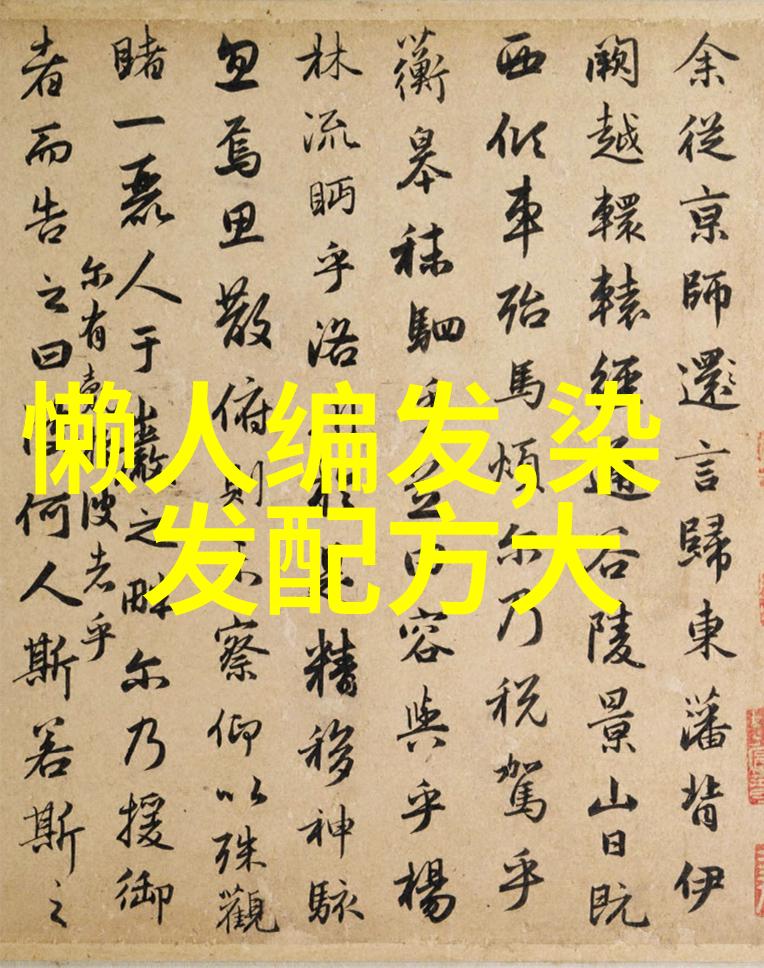 余從京師還言歸東藩背伊
闕越轘轅經通谷陵景山日既
西傾車殆馬煩尔乃税駕乎
蘅皋秣駟乎田容與乎楊
林流眄乎洛精移神駭
忽焉思散俯則察仰以殊觀
睹一麗人于巖之畔尔乃援御
者而告之曰何人斯若斯之
尔有者乎
懒人编发,染
发配方大